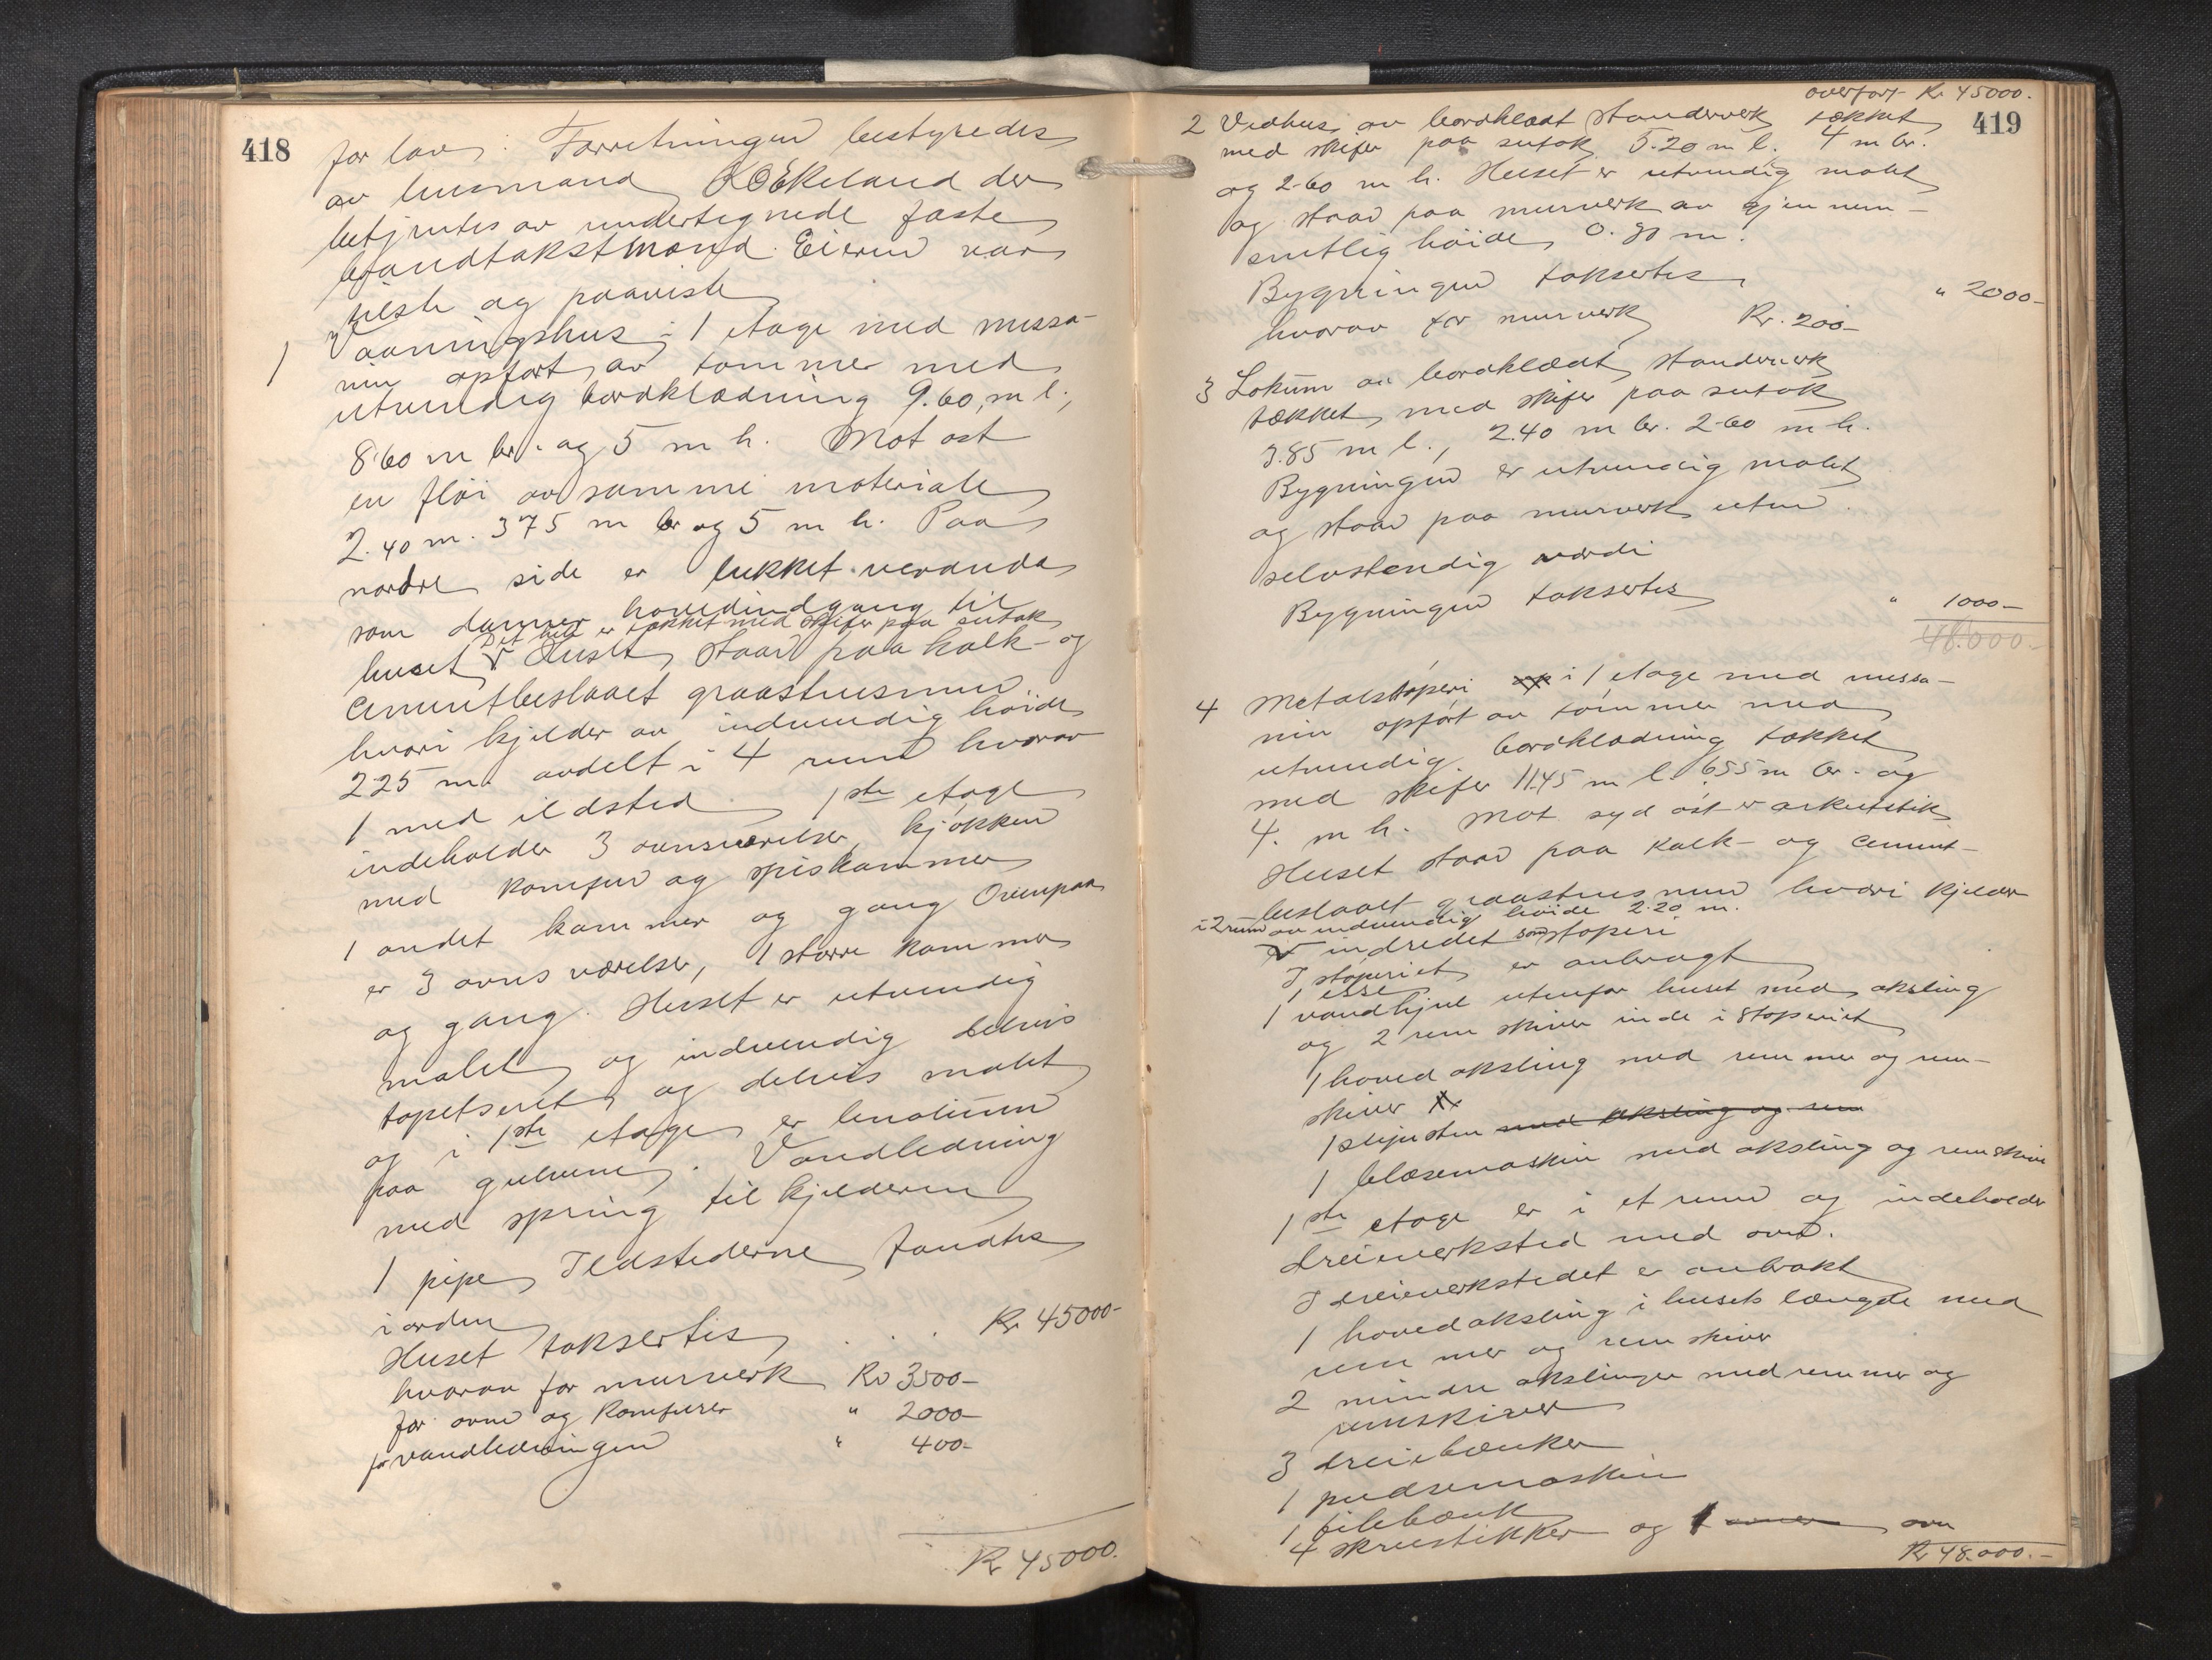 418
for lav. Forretningen bestyredes
av husmand O Ekeland der
betjentes av undertegnede faste
brandtakstmænd. Eieren var
tilste og paaviste
1 Vaaningshus i 1 etage med messa-
nin opført av tømmer med
utvendig bordklædning 9.60 m l.,
8.60 m br. og 5 m h. Mot øst
en fløi av samme materiale
2.40 m. 375 m br og 5 m h. Paa
nordre side er lukket veranda
som danner hovedindgang til
Det hele er tækket med skifer paa sutak
huset V Huset staar paa kalk- og
cementbeslaaet graastensmur
hvori kjelder av indvendig høide
225 m. avdelt i 4 rum hvorav
1 med ildsted 1ste etage
indeholder 3 ovnsværelser, kjøkken
med komfur og spiskammer
1 andet kammer og gang Ovenpaa
er 3 ovnsværelser, 1 større kammer
og gang. Huset er utvendig
malet og indvendig delvis
tapetseret og delvis malet
og i 1ste etage er linolium
paa gulvene. Vandledning
med spring til kjelderen
1 pipe Ildstederne fandtes
i orden
Huset taksertes . . . Kr 45000-
hvorav for murverk Kr 3500-
for ovne og komfurer " 2000-
for vandledningen " 400-
Kr 45000.
overført Kr 45000.
419
2 Vedhus av bordklædt standerverk tækket
med skifer paa sutak 5.20 m l. 4 m br.
og 2.60 m h. Huset er utvendig malet
og staar paa murverk av gjennem-
snitlig høide 0.80 m.
Bygningen taksertes " 2000-
hvorav for murverk Kr. 200-
3 Lokum av bordklædt standerverk
tækket med skifer paa sutak
3.85 m l., 2.40 m br. 2.60 m h.
Bygningen er utvendig malet
og staar paa murverk uten
selvstendig værdi
Bygningen taksertes " 1000-
48.000.
4 Metalstøperi i 1 etage med messa-
nin opført av tømmer med
utvendig bordklædning tækket
med skifer 11.45 m l. 655 m br. og
4. m h. Mot syd øst er
Huset staar paa kalk- og cement-
beslaaet graastensmur hvori kjelder
i 2 rum av indvendig høide 2.20 m.
V indredet som støperi
I støperiet er anbragt
1 esse
1 vandhjul utenfor huset med aksling
og 2 remskiver inde i støperiet
1 hovedaksling med remmer og rem-
skiver
1 slipesten med aksling og rem
1 blæsemaskin med aksling og remskive
1ste etage er i et rum og indeholder
dreieverksted med ovn.
I dreieverkstedet er anbrakt
1 hovedaksling i husets længde med
remmer og remskiver
2 mindre akslinger med remmer og
remskiver
3 dreiebænker
1 pudsemaskin
1 filebænk
4 skruestikker og 1 ovner ovn
Kr 48.000.-